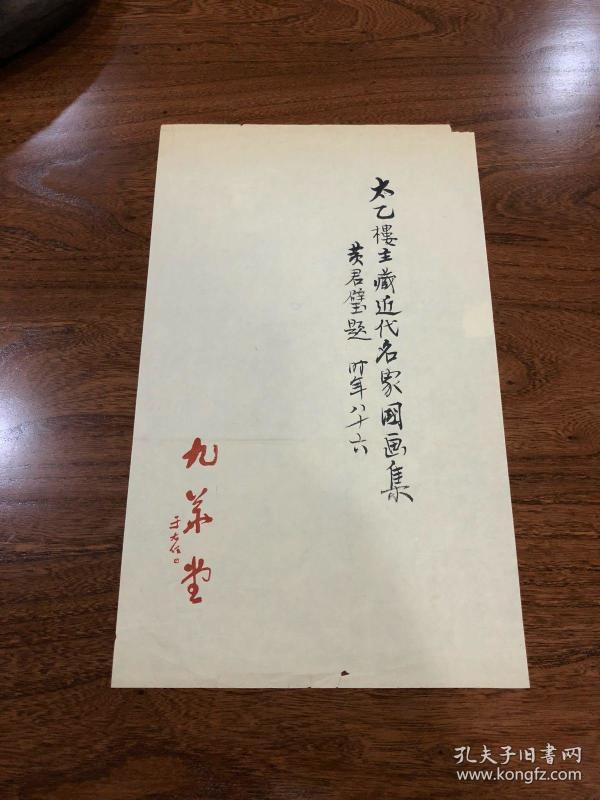 太乙樓主藏近代名家國画集
黄君璧題 时年八十六
九華堂
于右任
孔夫子旧书网
www.kongfz.com